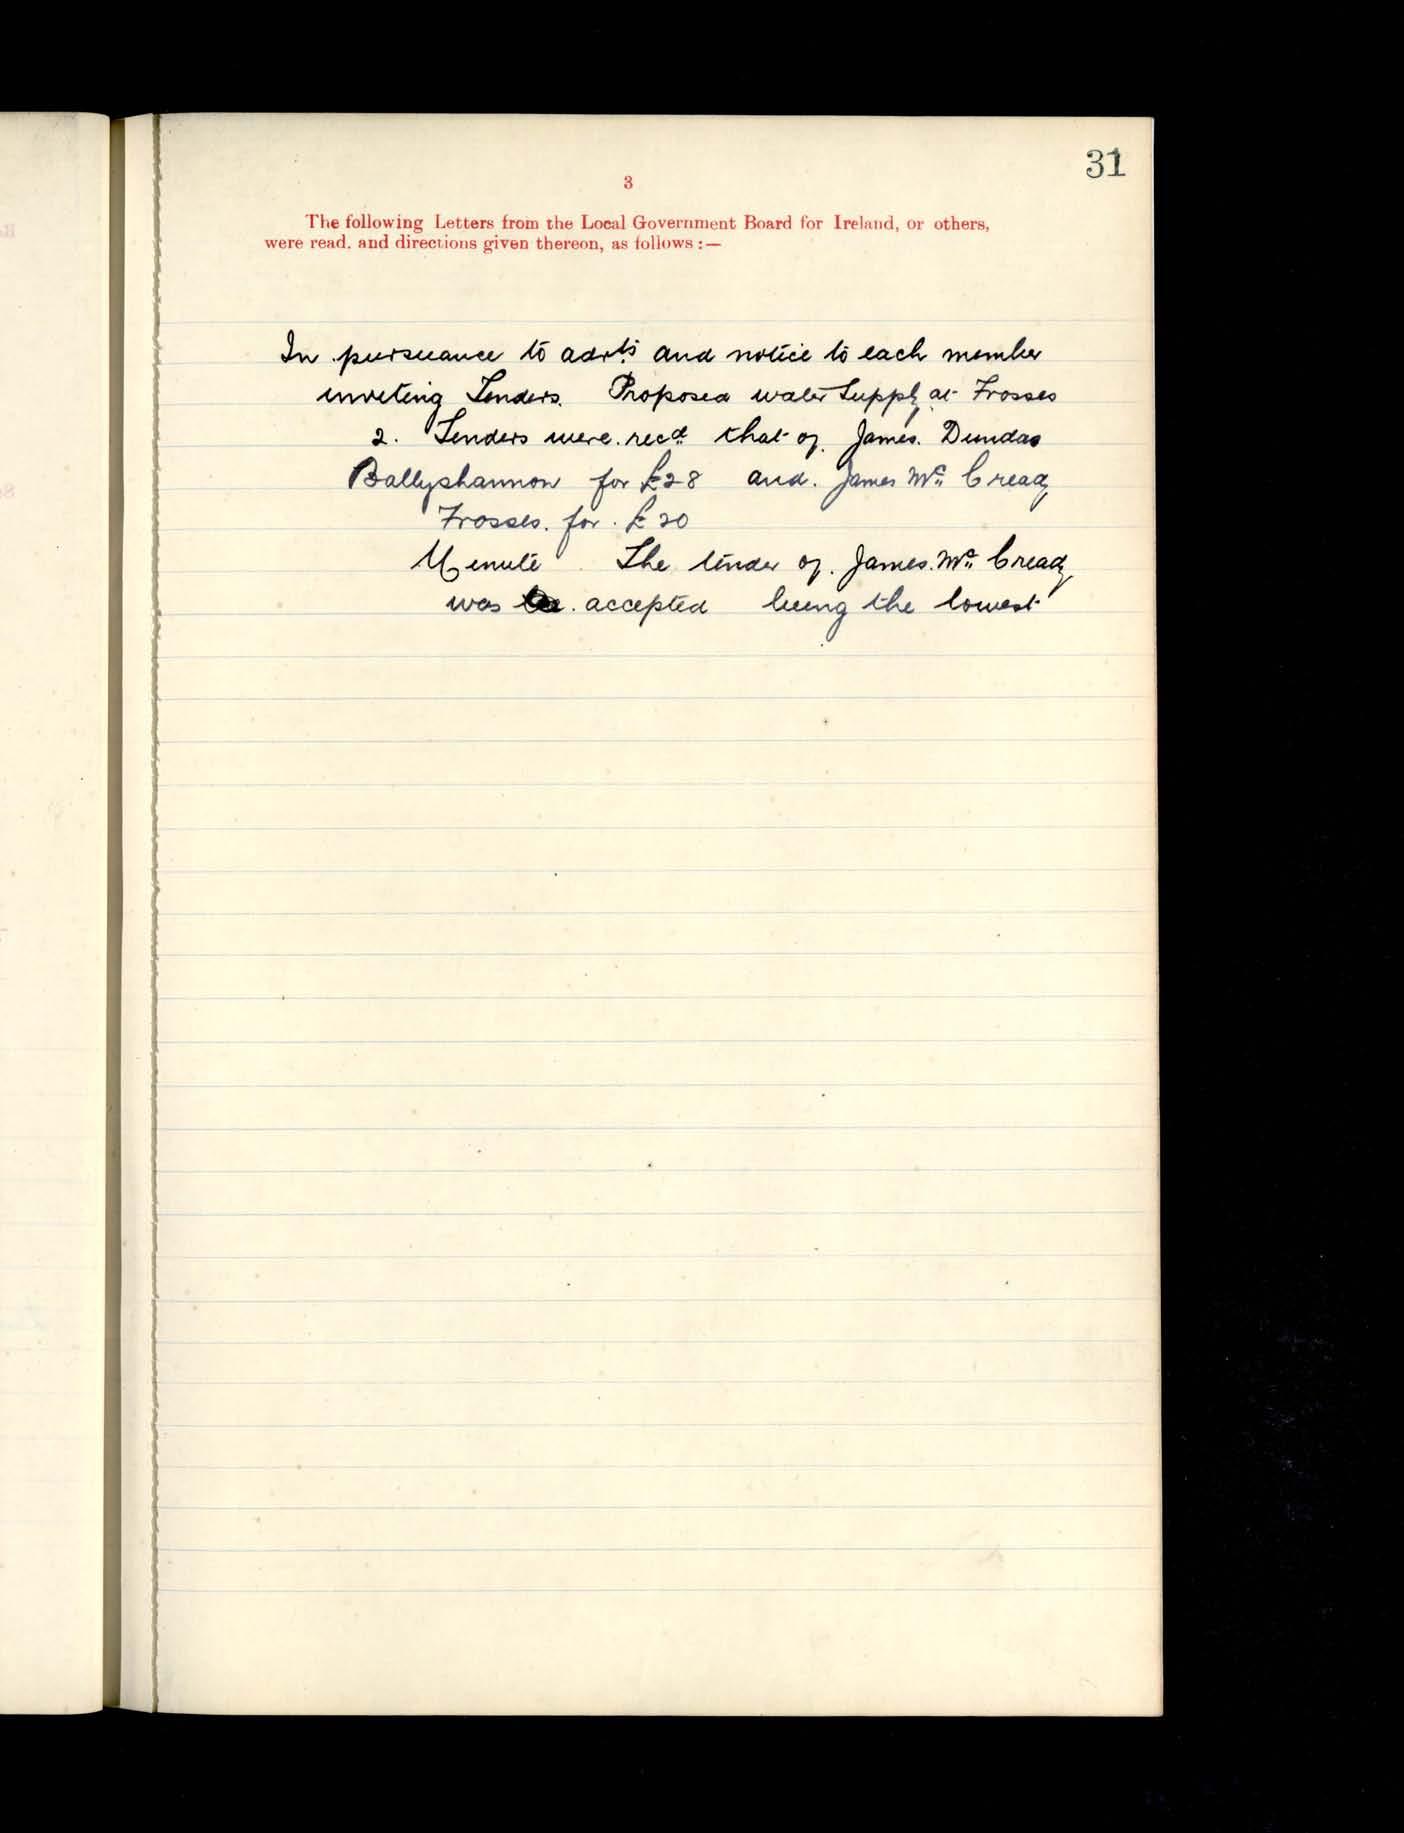 31
3
The following Letters from the Local Government Board for Ireland, or others,
were read. and directions given thereon, as follows :—
In pursuance to advts and notice to each member
inviting Tenders. Proposed water Supply at Frosses
2. Tenders were recd that of James Dundas
Ballyshannon for £28 and James Mc Cready
Frosses. for £20
Minute The tender of James Mc Cready
was accepted being the lowest